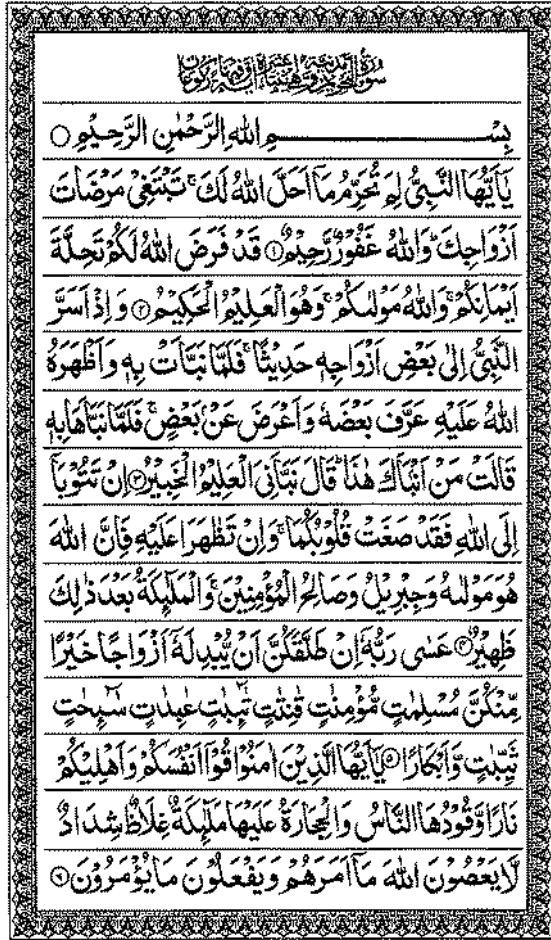 سُوْرَةُ التَّحْرِيْمِ مَدَنِيَّةٌ وَّهِيَ اثْنَتَا عَشْرَةَ اٰيَةً وَّفِيْهَا رُكُوْعَانِ
بِسْمِ اللهِ الرَّحْمٰنِ الرَّحِيْمِ ○
يٰۤاَيُّهَا النَّبِىُّ لِمَ تُحَرِّمُ مَاۤ اَحَلَّ اللهُ لَكَ ۚ تَبْتَغِىْ مَرْضَاتَ
اَزْوَاجِكَ ؕ وَاللهُ غَفُوْرٌ رَّحِيْمٌ ۝۱ قَدْ فَرَضَ اللهُ لَكُمْ تَحِلَّةَ
اَيْمَانِكُمْ ۚ وَاللهُ مَوْلٰىكُمْ ۚ وَهُوَ الْعَلِيْمُ الْحَكِيْمُ ۝۲ وَاِذْ اَسَرَّ
النَّبِىُّ اِلٰى بَعْضِ اَزْوَاجِهٖ حَدِيْثًا ۚ فَلَمَّا نَبَّاَتْ بِهٖ وَاَظْهَرَهُ
اللهُ عَلَيْهِ عَرَّفَ بَعْضَهٗ وَاَعْرَضَ عَنْۢ بَعْضٍ ۚ فَلَمَّا نَبَّاَهَا بِهٖ
قَالَتْ مَنْ اَنْۢبَاَكَ هٰذَا ؕ قَالَ نَبَّاَنِىَ الْعَلِيْمُ الْخَبِيْرُ ۝۳ اِنْ تَتُوْبَاۤ
اِلَى اللهِ فَقَدْ صَغَتْ قُلُوْبُكُمَا ۚ وَاِنْ تَظٰهَرَا عَلَيْهِ فَاِنَّ اللهَ
هُوَ مَوْلٰىهُ وَجِبْرِيْلُ وَصَالِحُ الْمُؤْمِنِيْنَ ۚ وَالْمَلٰٓئِكَةُ بَعْدَ ذٰلِكَ
ظَهِيْرٌ ۝۴ عَسٰى رَبُّهٗۤ اِنْ طَلَّقَكُنَّ اَنْ يُّبْدِلَهٗۤ اَزْوَاجًا خَيْرًا
مِّنْكُنَّ مُسْلِمٰتٍ مُّؤْمِنٰتٍ قٰنِتٰتٍ تٰٓئِبٰتٍ عٰبِدٰتٍ سٰٓئِحٰتٍ
ثَيِّبٰتٍ وَّاَبْكَارًا ۝۵ يٰۤاَيُّهَا الَّذِيْنَ اٰمَنُوْا قُوْۤا اَنْفُسَكُمْ وَاَهْلِيْكُمْ
نَارًا وَّقُوْدُهَا النَّاسُ وَالْحِجَارَةُ عَلَيْهَا مَلٰٓئِكَةٌ غِلَاظٌ شِدَادٌ
لَّا يَعْصُوْنَ اللهَ مَاۤ اَمَرَهُمْ وَيَفْعَلُوْنَ مَا يُؤْمَرُوْنَ ۝۶